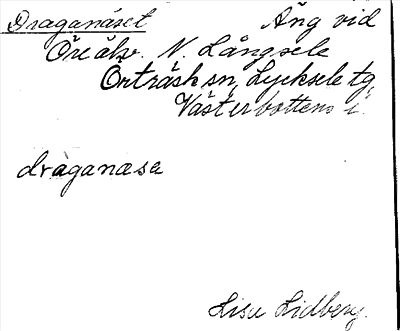 Draganäset Äng vid
Öre älv. N. Långsele
Örträsk sn, Lycksele tg,
Västerbottens l.
draganäsa
Lisu Lidberg.